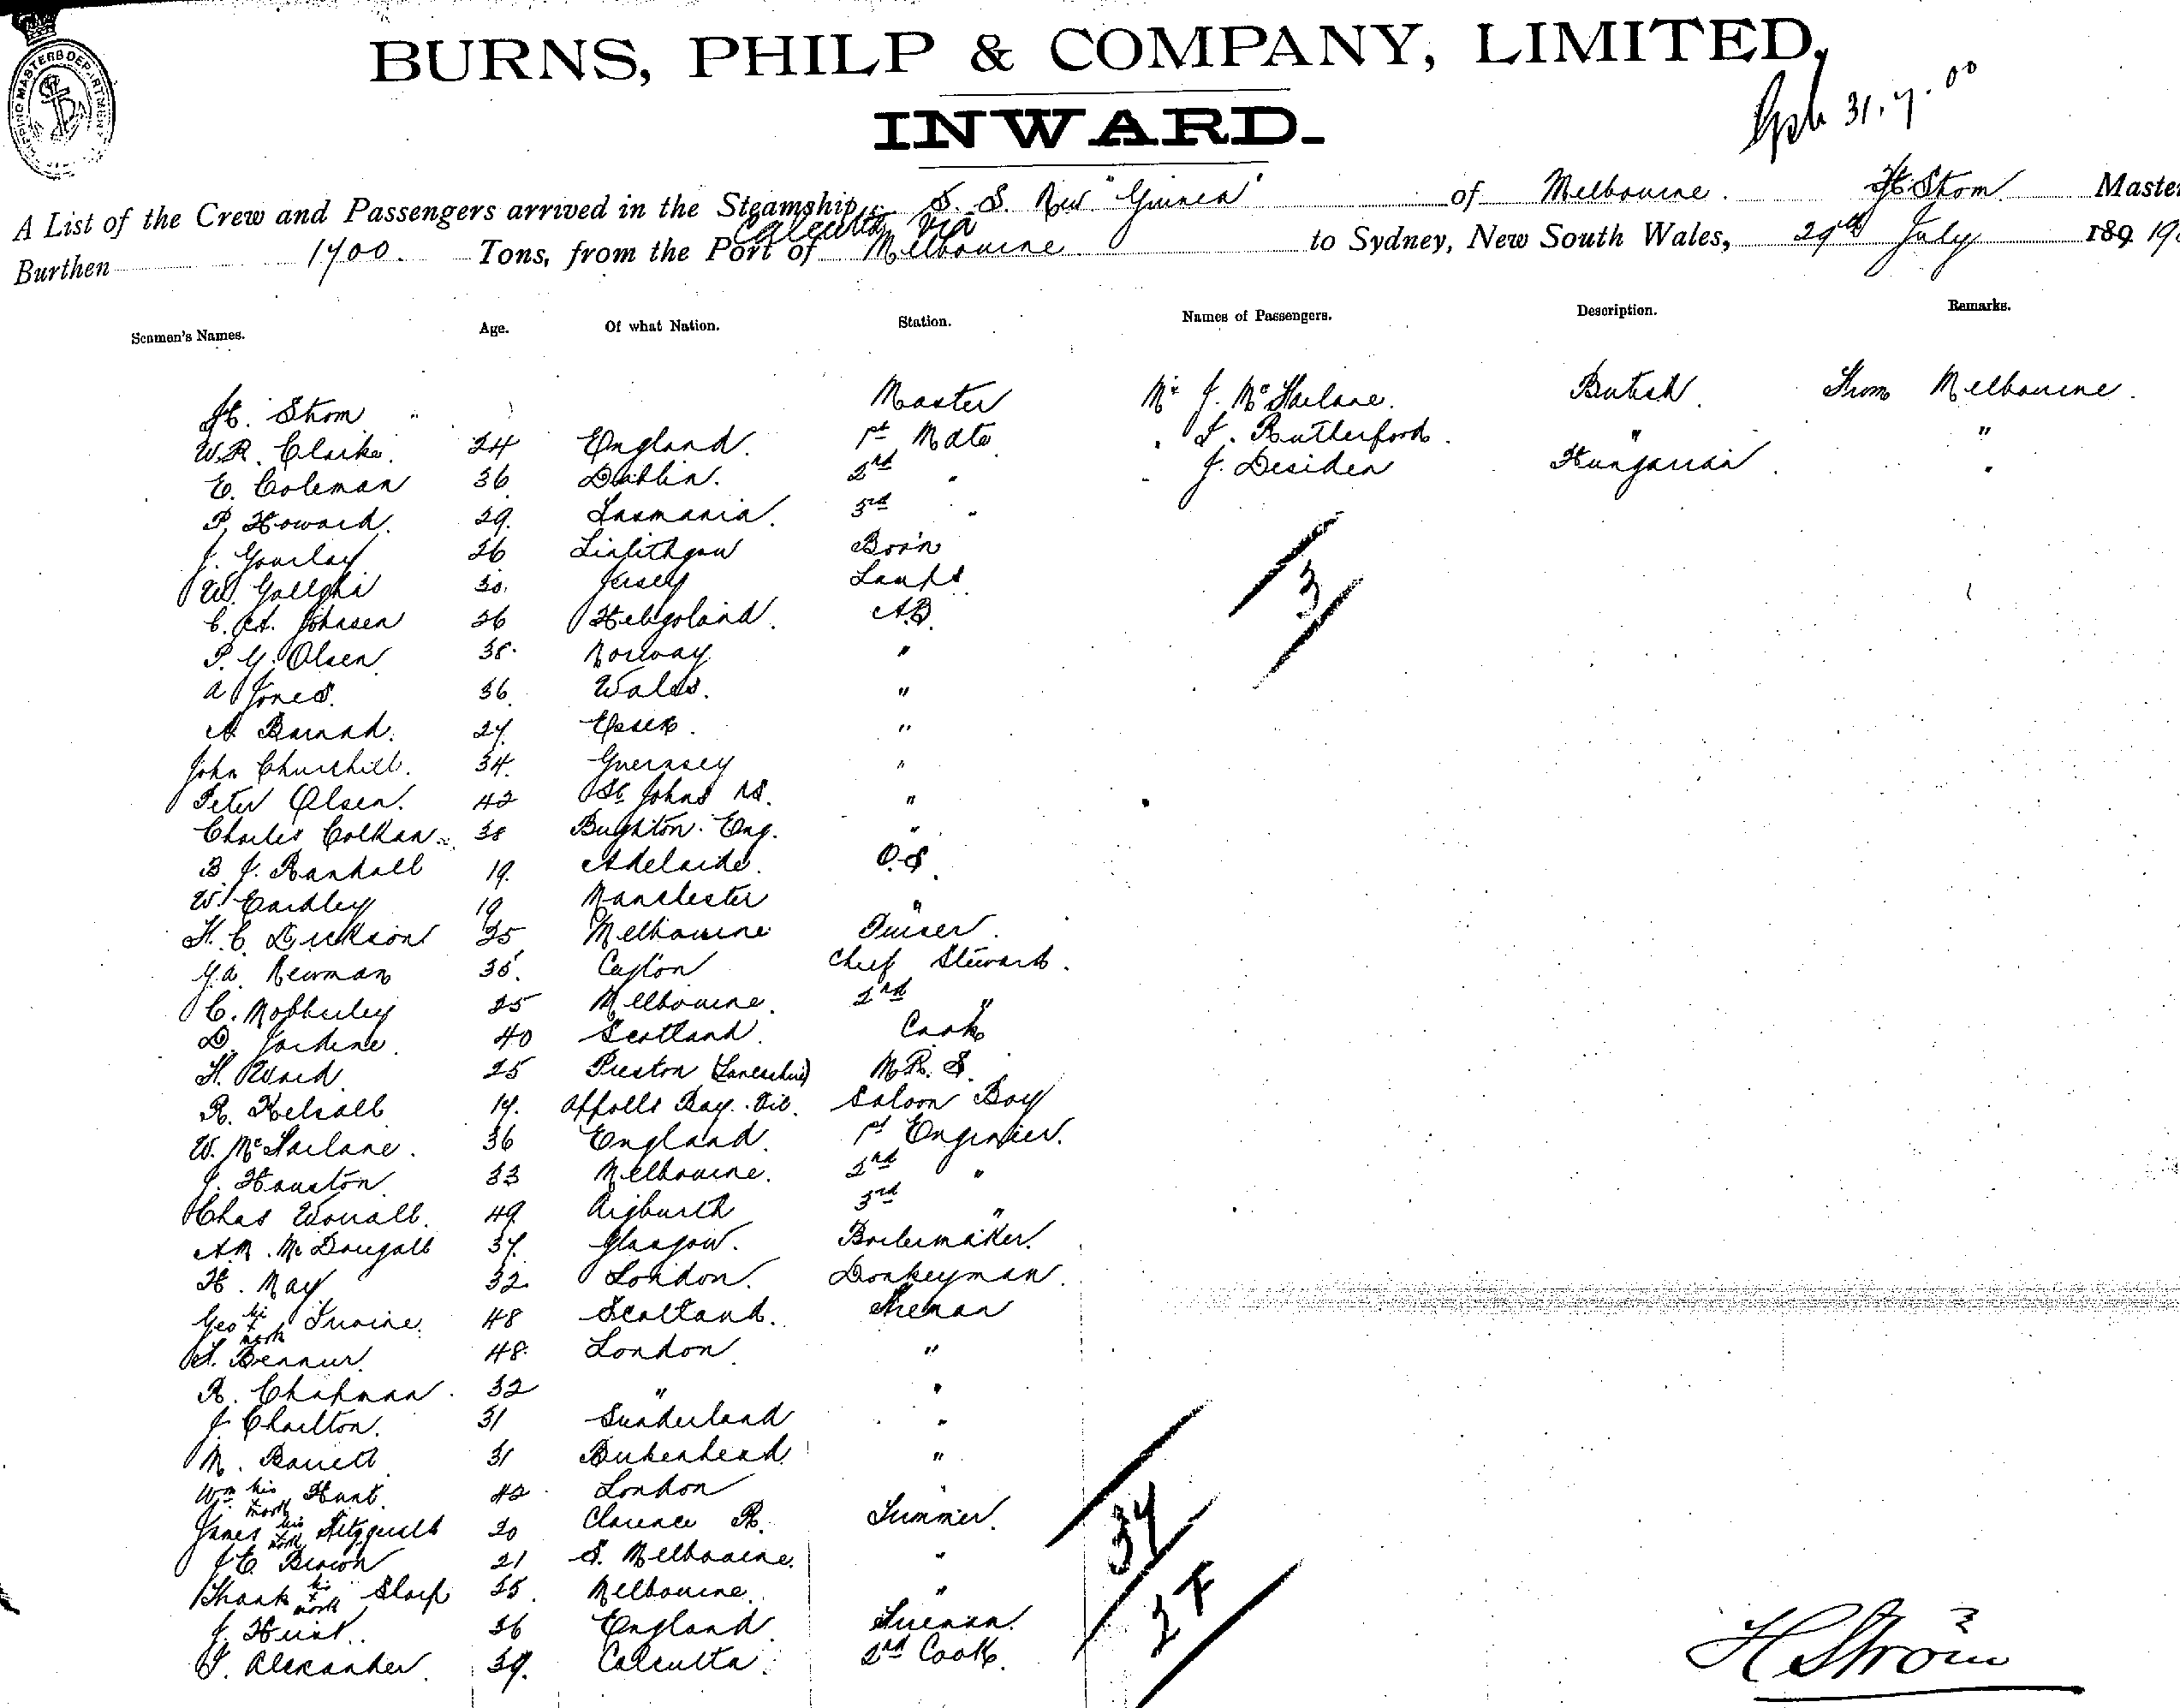 SHIPPING MASTERS DEPARTMENT
BURNS, PHILP & COMPANY, LIMITED,
INWARD.
31.7.00
A List of the Crew and Passengers arrived in the Steamship S.S. New "Guinea" of Melbourne. H. Strom Master
Burthen 1700. Tons, from the Port of Calcutta Via Melbourne to Sydney, New South Wales, 29th July 189 19
Seamen's Names. Age. Of what Nation. Station. Names of Passengers. Description. Remarks.
H. Strom Master Mr J. McFarlane. British. From Melbourne.
W.R. Clarke. 24 England. 1st Mate " Rutherford. " "
E. Coleman 36 Dublin. 2nd " " J. Desiden Hungarian. "
P. Howard. 29. Tasmania. 3rd "
J. Gourlay 26 Linlithgow Bos'n
W. 30. Jersey Lamps
C. A. Johnsen 26 Helgoland. A.B.
P. Y. Olsen 38. Norway "
A Jones. 36. Wales. "
A Barnard. 27. Essex. "
John Churchill. 34. Guernsey "
Peter Olsen. 42 St Johns NS. "
Charles 38 Brighton. Eng. "
B J. Randall 19. Adelaide. O.S.
W. Eardley 19 Manchester "
H. C. Dickson 25 Melbourne Purser.
Y.A. Newman 35. Ceylon Chief Steward.
C. Mobberley 25 Melbourne. 2nd "
D. Jardine. 40 Scotland. Cook
H. Ward. 25 Preston (Lancashire) M.R.S.
R. Kelsall 17. Apolls Bay. Vic. Saloon Boy
W. McFarlane. 36 England. 1st Engineer.
J. Houston. 33 Melbourne. 2nd "
Chas Worrall. 49. Aigburth 3rd "
A.M. McDougall 37. Glasgow. Boilermaker.
H. May 32. London. Donkeyman.
Geo his x mark Irvine. 48 Scotland. Fireman
Bennur. 48. London. "
R. Chapman. 32 " "
J. Charlton. 31 Sunderland "
M. Barrett 31 Birkenhead. "
Wm his x mark Hunt. 42 London "
James his x mark Fitzgerald 20 Clarence R. Trimmer.
J E. Brown 21 S. Melbourne. "
Frank his x mark Sharp 25. Melbourne. "
J. Hurst. 36 England. Fireman.
J. Alexander. 39. Calcutta. 2nd Cook.
3
37
H Ström